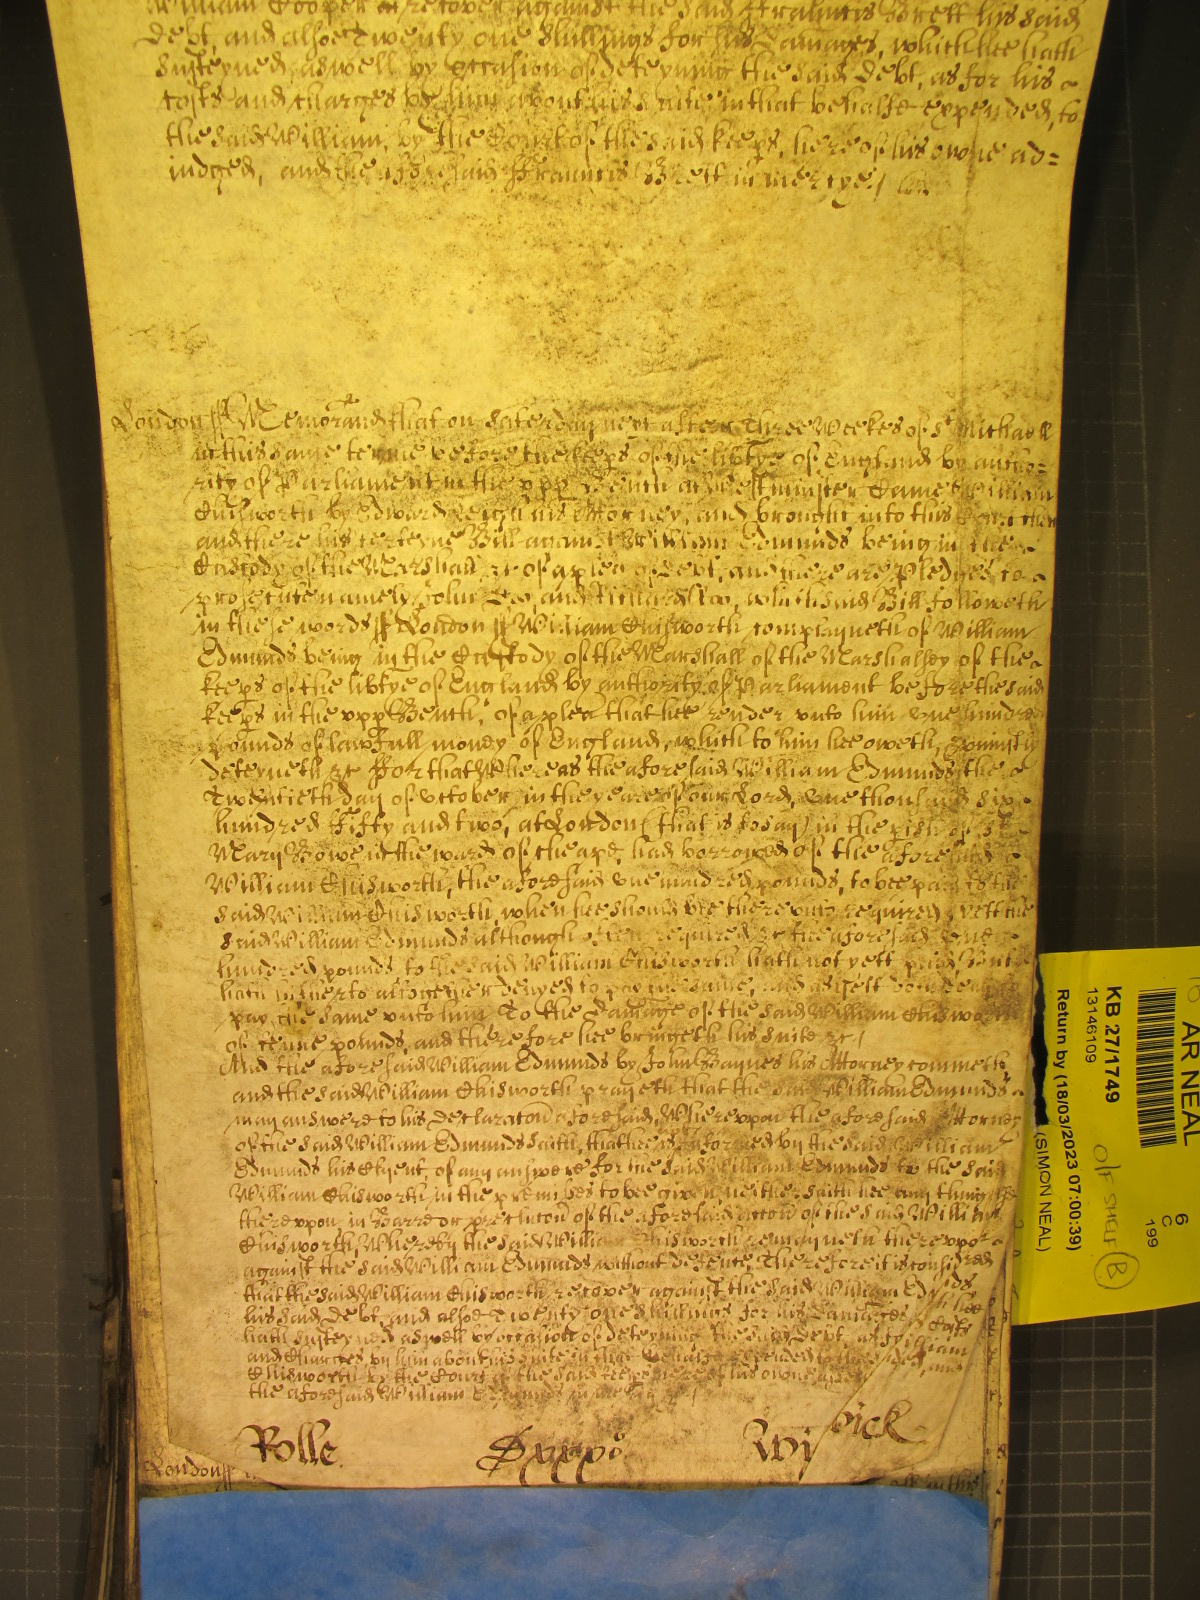 William Cooper recover against the said Francis Brett his said
debt, and alsoe Twenty one shillings for his damages, which hee hath
susteyned, aswell by occasion of deteyning the said debt, as for his
costs and charges by him about his suite in that behalfe expended, to
the said William, by the Court of the said keeps, here of his owne ad=
iudged, and the aforesaid Ffrancis Brett in mercye /
London ss Memorand that on Saterday next after Three Weekes of St Michaell
in this same terme before the keeps of the libtye of England by autho=
rity of Parliament in the vpp Bench at Westminster Came William
Chisworth by Edward his Attorney, and brought into this Court then
and there his certeyne Bill against William Edmunds being in the
Custody of the Marshall &c of a plea of debt, and there are Pledges to
prosecute namely, John Doo, and Richard Roo, which said Bill followeth
in these words ss London ss William Chisworth complayneth of William
Edmunds being in the Custody of the Marshall of the Marshalsey of the
keeps of the libtye of England by authority of Parliament before the said
keeps in the vpp Bench, of a plea that hee render vnto him one hundred
pounds of lawfull money of England, which to him hee oweth, & vniustly
deteyneth &c Ffor that Whereas the aforesaid William Edmunds the
Twentieth day of October, in the yeare of our Lord, One thousand six
hundred Fifty and two, at London (that is to say) in the pish of St
Mary Bowe in the ward of cheape, had borrowed of the aforesaid
William Chisworth, the aforesaid one hundred pounds, to bee paid to the
said William Chisworth, when hee should bee therevnto required, yett the
said William Edmunds although often required &c the aforesaid One
hundred pounds to the said William Chisworth hath not yett paid, but
hath hitherto altogether denyed to pay the same, and as yett doth deny to
pay the same vnto him To the damage of the said William Chisworth
of tenne pounds, and therefore hee bringeth his suite &c /
And the aforesaid William Edmunds by John Baynes his Attorney commeth
and the said William Chisworth prayeth that the said William Edmunds
may answere to his declaracon aforesaid, Wherevpon the aforesaid Attorney
of the said William Edmunds saith, that he is not informed by the said William
Edmunds his Clyent, of any answere for the said William Edmunds to the said
William Chisworth, in the premisses to bee given, neither saith hee any thing
therevpon, in Barre or preclucon of the aforesaid accon of the said William
Chisworth, Whereby the said William Chisworth remayneth therevpon
against the said William Edmunds without defence, Therefore it is considered
that the said William Chisworth, recover against the said William Edmunds
his said debt, and alsoe Twenty one shillings for his damages which hee
hath susteyned aswell by occasion of deteyning the said debt, as for his Costs
and Charges, by him about his suite in that behalfe expended to the said William
Chisworth by the Court of the said keeps here of his owne adiudged, and
the aforesaid William Edmunds in mercye &c /
Rolle. Wi pick
London ss
AR NEAL
KB 27/1749
13146109
Return by (18/03/2023 07:00:39)
(SIMON NEAL)
6
C
199
B